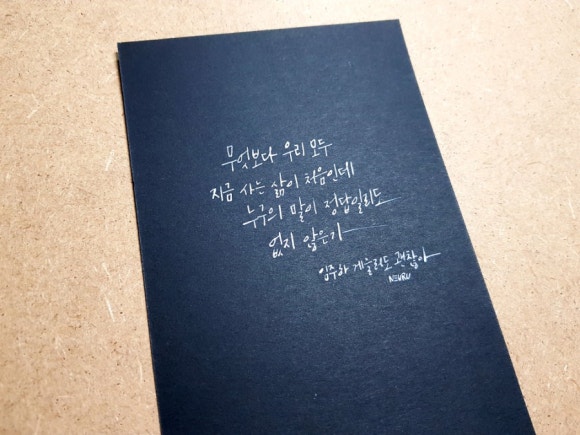 무엇보다 우리 모두
지금 사는 삶이 처음인데
누구의 말이 정답일리도
없지 않은가
임주하 게을러도 괜찮아
NEURU